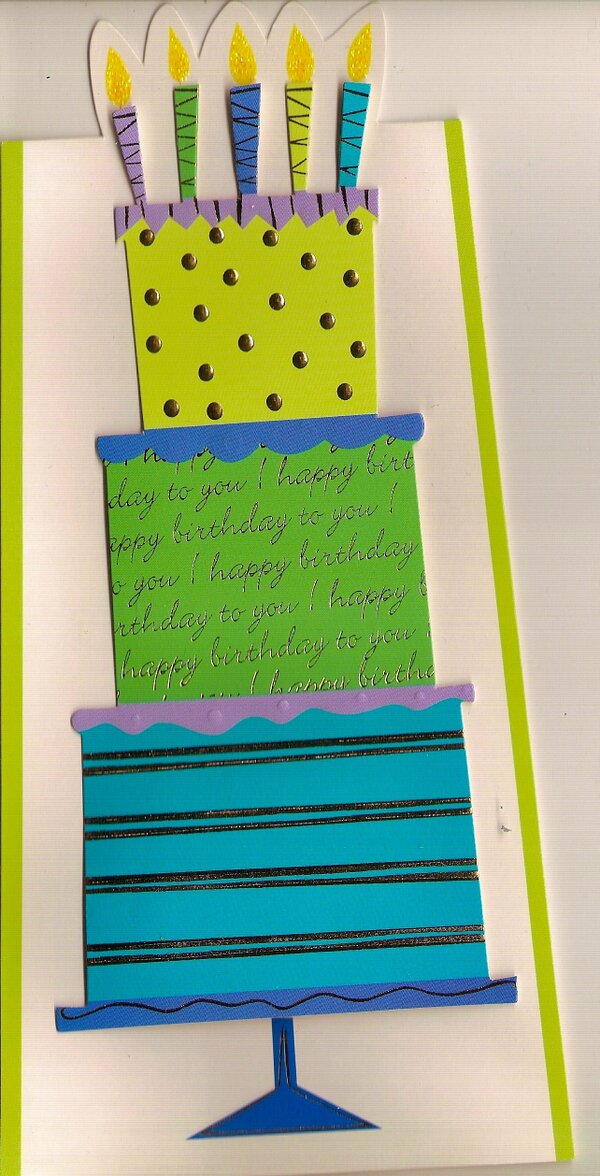 happy
day to you ! happy birt
appy birthday to you !
o you ! happy birthday
rthday to you ! happy b
happy birthday to you !
you ! happy birtha